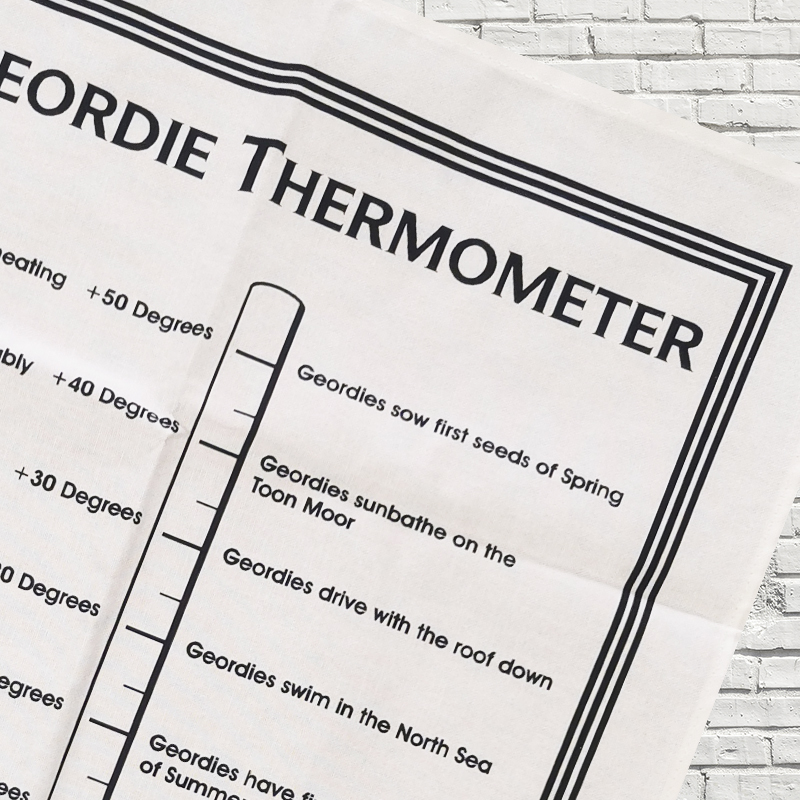 EORDIE THERMOMETER
eating +50 Degrees
Geordies sow first seeds of Spring
ably +40 Degrees
Geordies sunbathe on the
Toon Moor
+30 Degrees
Geordies drive with the roof down
0 Degrees
Geordies swim in the North Sea
egrees
Geordies have fi
of Summe
ees